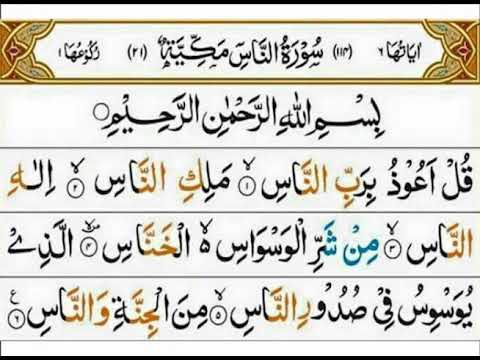 اٰيَاتُهَا ٦ (١١٤) سُوْرَةُ النَّاسِ مَكِّيَّةٌ (٢١) رُكُوْعُهَا ١
بِسْمِ اللّٰهِ الرَّحْمٰنِ الرَّحِيْمِ
قُلْ اَعُوْذُ بِرَبِّ النَّاسِ ۙ﴿١﴾ مَلِكِ النَّاسِ ۙ﴿٢﴾ اِلٰهِ
النَّاسِ ۙ﴿٣﴾ مِنْ شَرِّ الْوَسْوَاسِ ۙ۬ الْخَنَّاسِ ۪ۙ﴿٤﴾ الَّذِيْ
يُوَسْوِسُ فِيْ صُدُوْرِ النَّاسِ ۙ﴿٥﴾ مِنَ الْجِنَّةِ وَالنَّاسِ ﴿٦﴾ ع